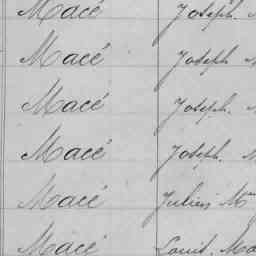 Macé Joseph.
Macé Joseph
Macé Joseph.
Macé Joseph.
Macé Julien M
Macé Louis. Ma